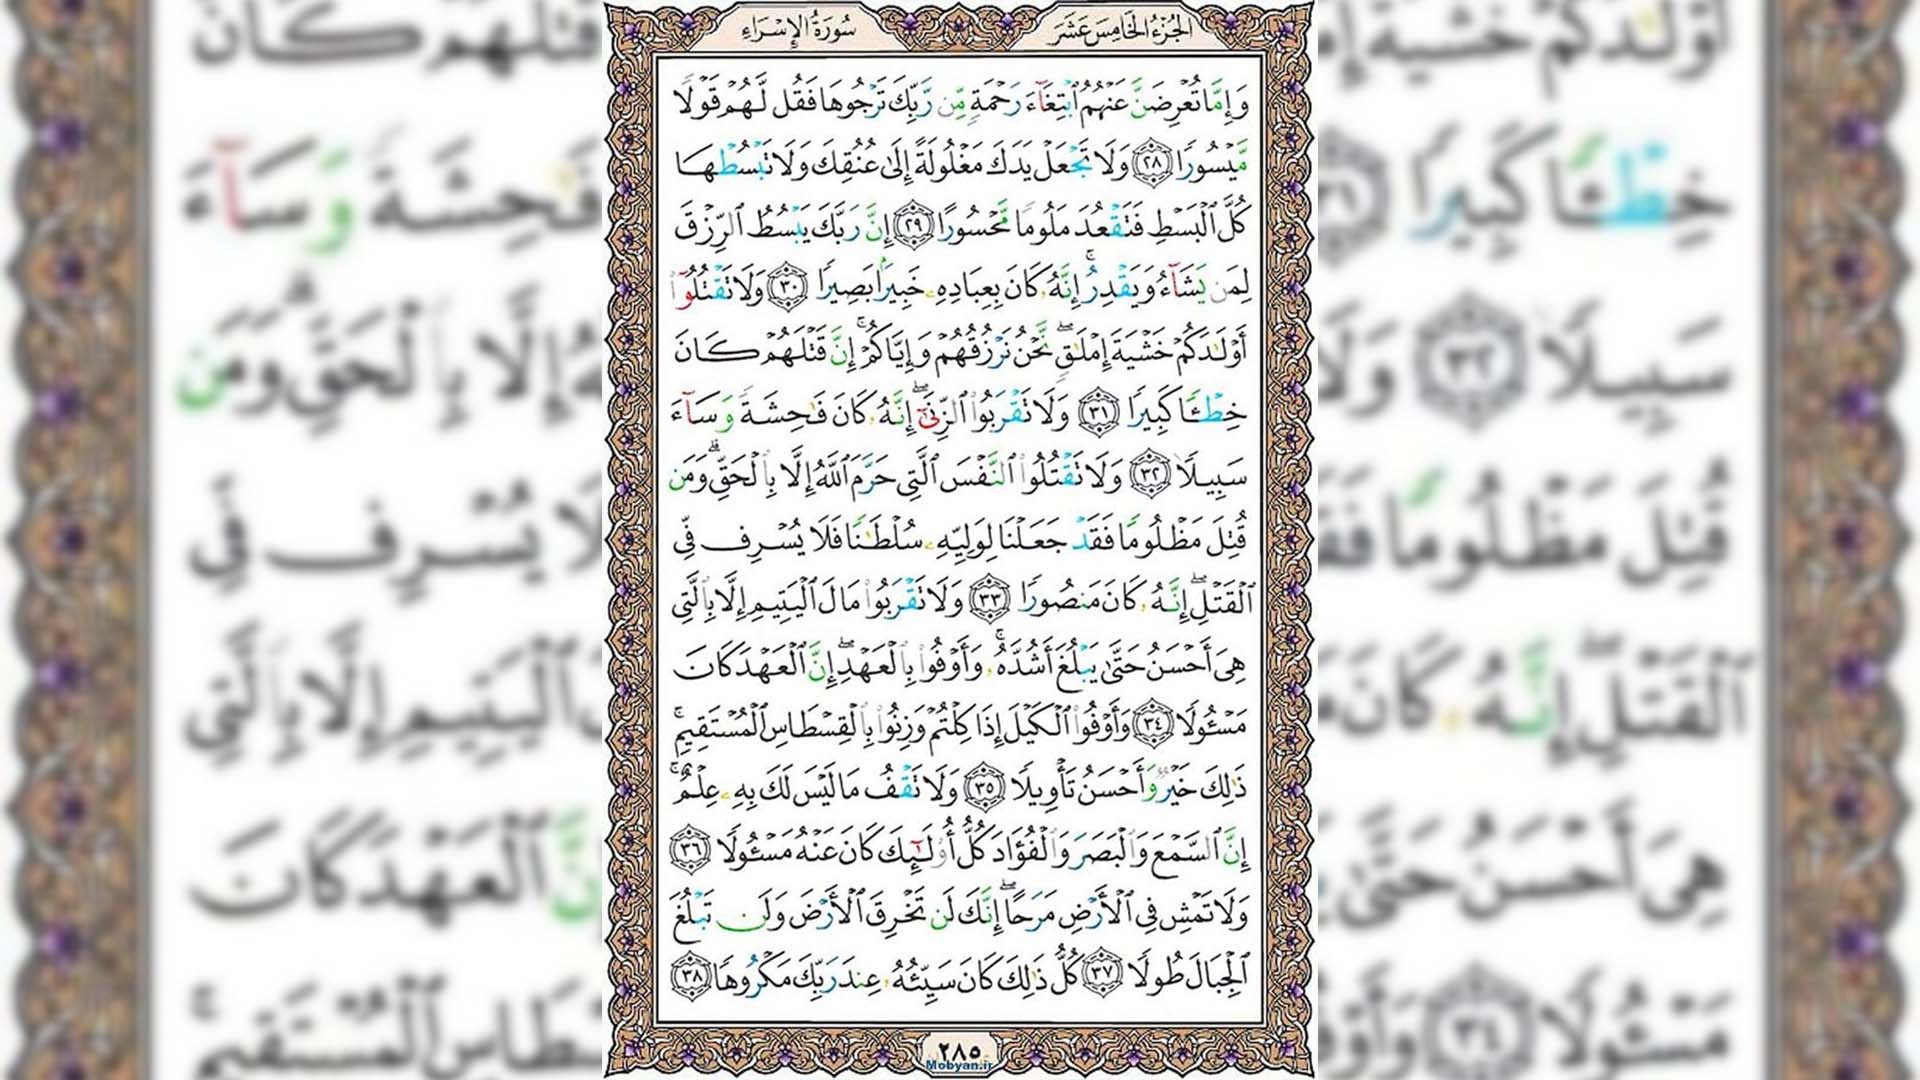 الجُزْءُ الخَامِسَ عَشَرَ
سُورَةُ الإِسْرَاءِ
وَإِمَّا تُعْرِضَنَّ عَنْهُمُ ٱبْتِغَآءَ رَحْمَةٍ مِّن رَّبِّكَ تَرْجُوهَا فَقُل لَّهُمْ قَوْلًا
مَّيْسُورًا ﴿٢٨﴾ وَلَا تَجْعَلْ يَدَكَ مَغْلُولَةً إِلَىٰ عُنُقِكَ وَلَا تَبْسُطْهَا
كُلَّ ٱلْبَسْطِ فَتَقْعُدَ مَلُومًا مَّحْسُورًا ﴿٢٩﴾ إِنَّ رَبَّكَ يَبْسُطُ ٱلرِّزْقَ
لِمَن يَشَآءُ وَيَقْدِرُ ۚ إِنَّهُۥ كَانَ بِعِبَادِهِۦ خَبِيرًۢا بَصِيرًا ﴿٣٠﴾ وَلَا تَقْتُلُوٓا۟
أَوْلَٰدَكُمْ خَشْيَةَ إِمْلَٰقٍ ۖ نَّحْنُ نَرْزُقُهُمْ وَإِيَّاكُمْ ۚ إِنَّ قَتْلَهُمْ كَانَ
خِطْـًٔا كَبِيرًا ﴿٣١﴾ وَلَا تَقْرَبُوا۟ ٱلزِّنَىٰٓ ۖ إِنَّهُۥ كَانَ فَٰحِشَةً وَسَآءَ
سَبِيلًا ﴿٣٢﴾ وَلَا تَقْتُلُوا۟ ٱلنَّفْسَ ٱلَّتِى حَرَّمَ ٱللَّهُ إِلَّا بِٱلْحَقِّ ۗ وَمَن
قُتِلَ مَظْلُومًا فَقَدْ جَعَلْنَا لِوَلِيِّهِۦ سُلْطَٰنًا فَلَا يُسْرِف فِّى
ٱلْقَتْلِ ۖ إِنَّهُۥ كَانَ مَنصُورًا ﴿٣٣﴾ وَلَا تَقْرَبُوا۟ مَالَ ٱلْيَتِيمِ إِلَّا بِٱلَّتِى
هِىَ أَحْسَنُ حَتَّىٰ يَبْلُغَ أَشُدَّهُۥ ۚ وَأَوْفُوا۟ بِٱلْعَهْدِ ۖ إِنَّ ٱلْعَهْدَ كَانَ
مَسْـُٔولًا ﴿٣٤﴾ وَأَوْفُوا۟ ٱلْكَيْلَ إِذَا كِلْتُمْ وَزِنُوا۟ بِٱلْقِسْطَاسِ ٱلْمُسْتَقِيمِ ۚ
ذَٰلِكَ خَيْرٌ وَأَحْسَنُ تَأْوِيلًا ﴿٣٥﴾ وَلَا تَقْفُ مَا لَيْسَ لَكَ بِهِۦ عِلْمٌ ۚ
إِنَّ ٱلسَّمْعَ وَٱلْبَصَرَ وَٱلْفُؤَادَ كُلُّ أُو۟لَٰٓئِكَ كَانَ عَنْهُ مَسْـُٔولًا ﴿٣٦﴾
وَلَا تَمْشِ فِى ٱلْأَرْضِ مَرَحًا ۖ إِنَّكَ لَن تَخْرِقَ ٱلْأَرْضَ وَلَن تَبْلُغَ
ٱلْجِبَالَ طُولًا ﴿٣٧﴾ كُلُّ ذَٰلِكَ كَانَ سَيِّئُهُۥ عِندَ رَبِّكَ مَكْرُوهًا ﴿٣٨﴾
٢٨٥
Mobyan.ir